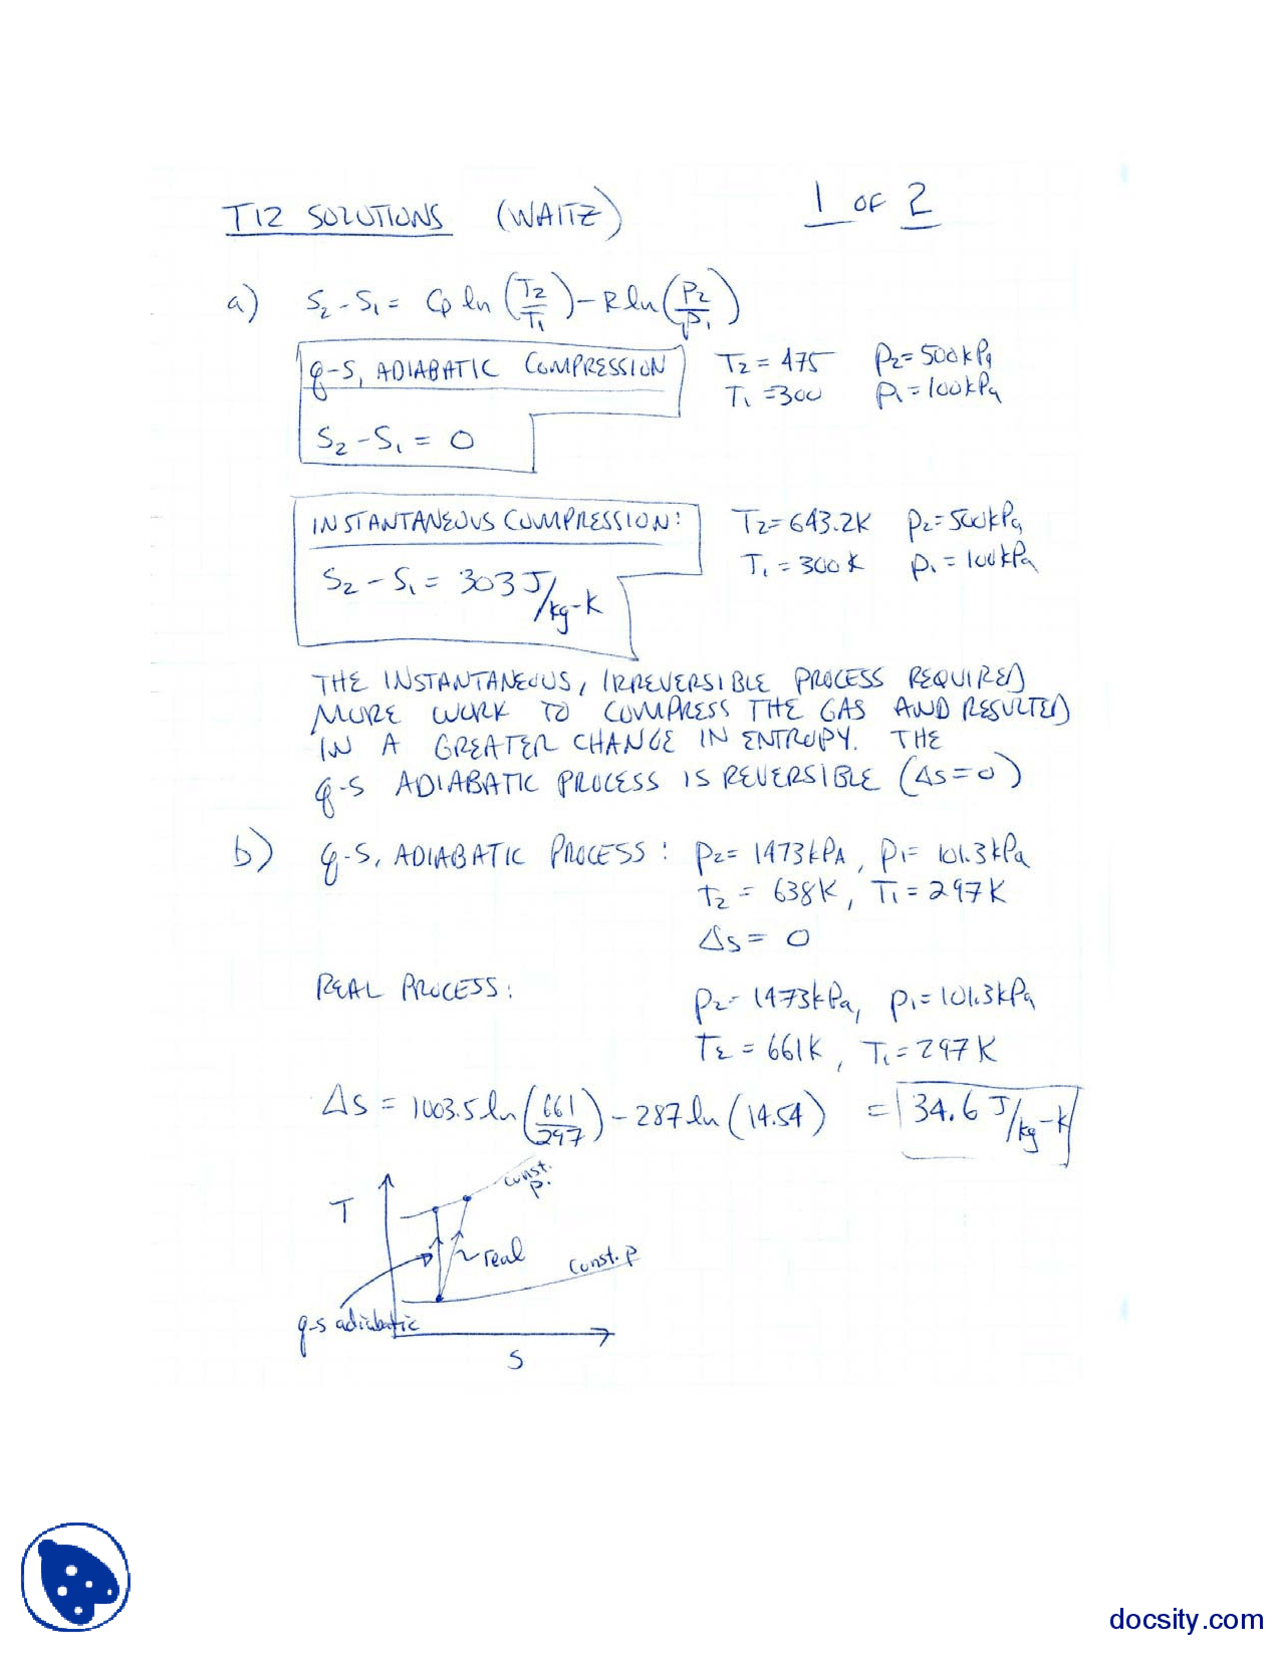 T12 SOLUTIONS (WAITZ) 1 OF 2
a) S₂-S₁= Cp ln (T₂/T₁) - R ln (P₂/P₁)
q-s, ADIABATIC COMPRESSION T₂ = 475 P₂= 500kPa
T₁ =300 P₁=100kPa
S₂-S₁ = 0
INSTANTANEOUS COMPRESSION: T₂=643.2K P₂=500kPa
T₁ = 300K P₁ = 100kPa
S₂-S₁ = 303 J/kg-K
THE INSTANTANEOUS, IRREVERSIBLE PROCESS REQUIRED
MORE WORK TO COMPRESS THE GAS AND RESULTED
IN A GREATER CHANGE IN ENTROPY. THE
q-s ADIABATIC PROCESS IS REVERSIBLE (Δs=0)
b) q-s, ADIABATIC PROCESS: P₂= 1473kPA, P₁= 101.3kPa
T₂ = 638K, T₁=297K
Δs = 0
REAL PROCESS: P₂= 1473kPa, P₁=101.3kPa
T₂ =661K, T₁=297K
Δs = 1003.5 ln (661/297) - 287 ln (14.54) = 34.6 J/kg-K
const. p.
T
real
const. p
q-s adiabatic
s
docsity.com